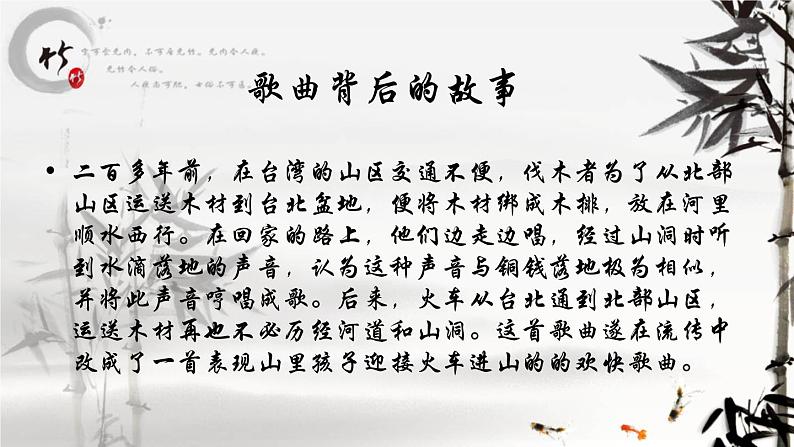 竹
宁可食无肉，不可居无竹。无肉令人瘦，
无竹令人俗。
人瘦尚可肥，士俗不可医。
竹
歌曲背后的故事
• 二百多年前，在台湾的山区交通不便，伐木者为了从北部
山区运送木材到台北盆地，便将木材绑成木排，放在河里
顺水西行。在回家的路上，他们边走边唱，经过山洞时听
到水滴落地的声音，认为这种声音与铜钱落地极为相似，
并将此声音哼唱成歌。后来，火车从台北通到北部山区，
运送木材再也不必历经河道和山洞。这首歌曲遂在流传中
改成了一首表现山里孩子迎接火车进山的的欢快歌曲。